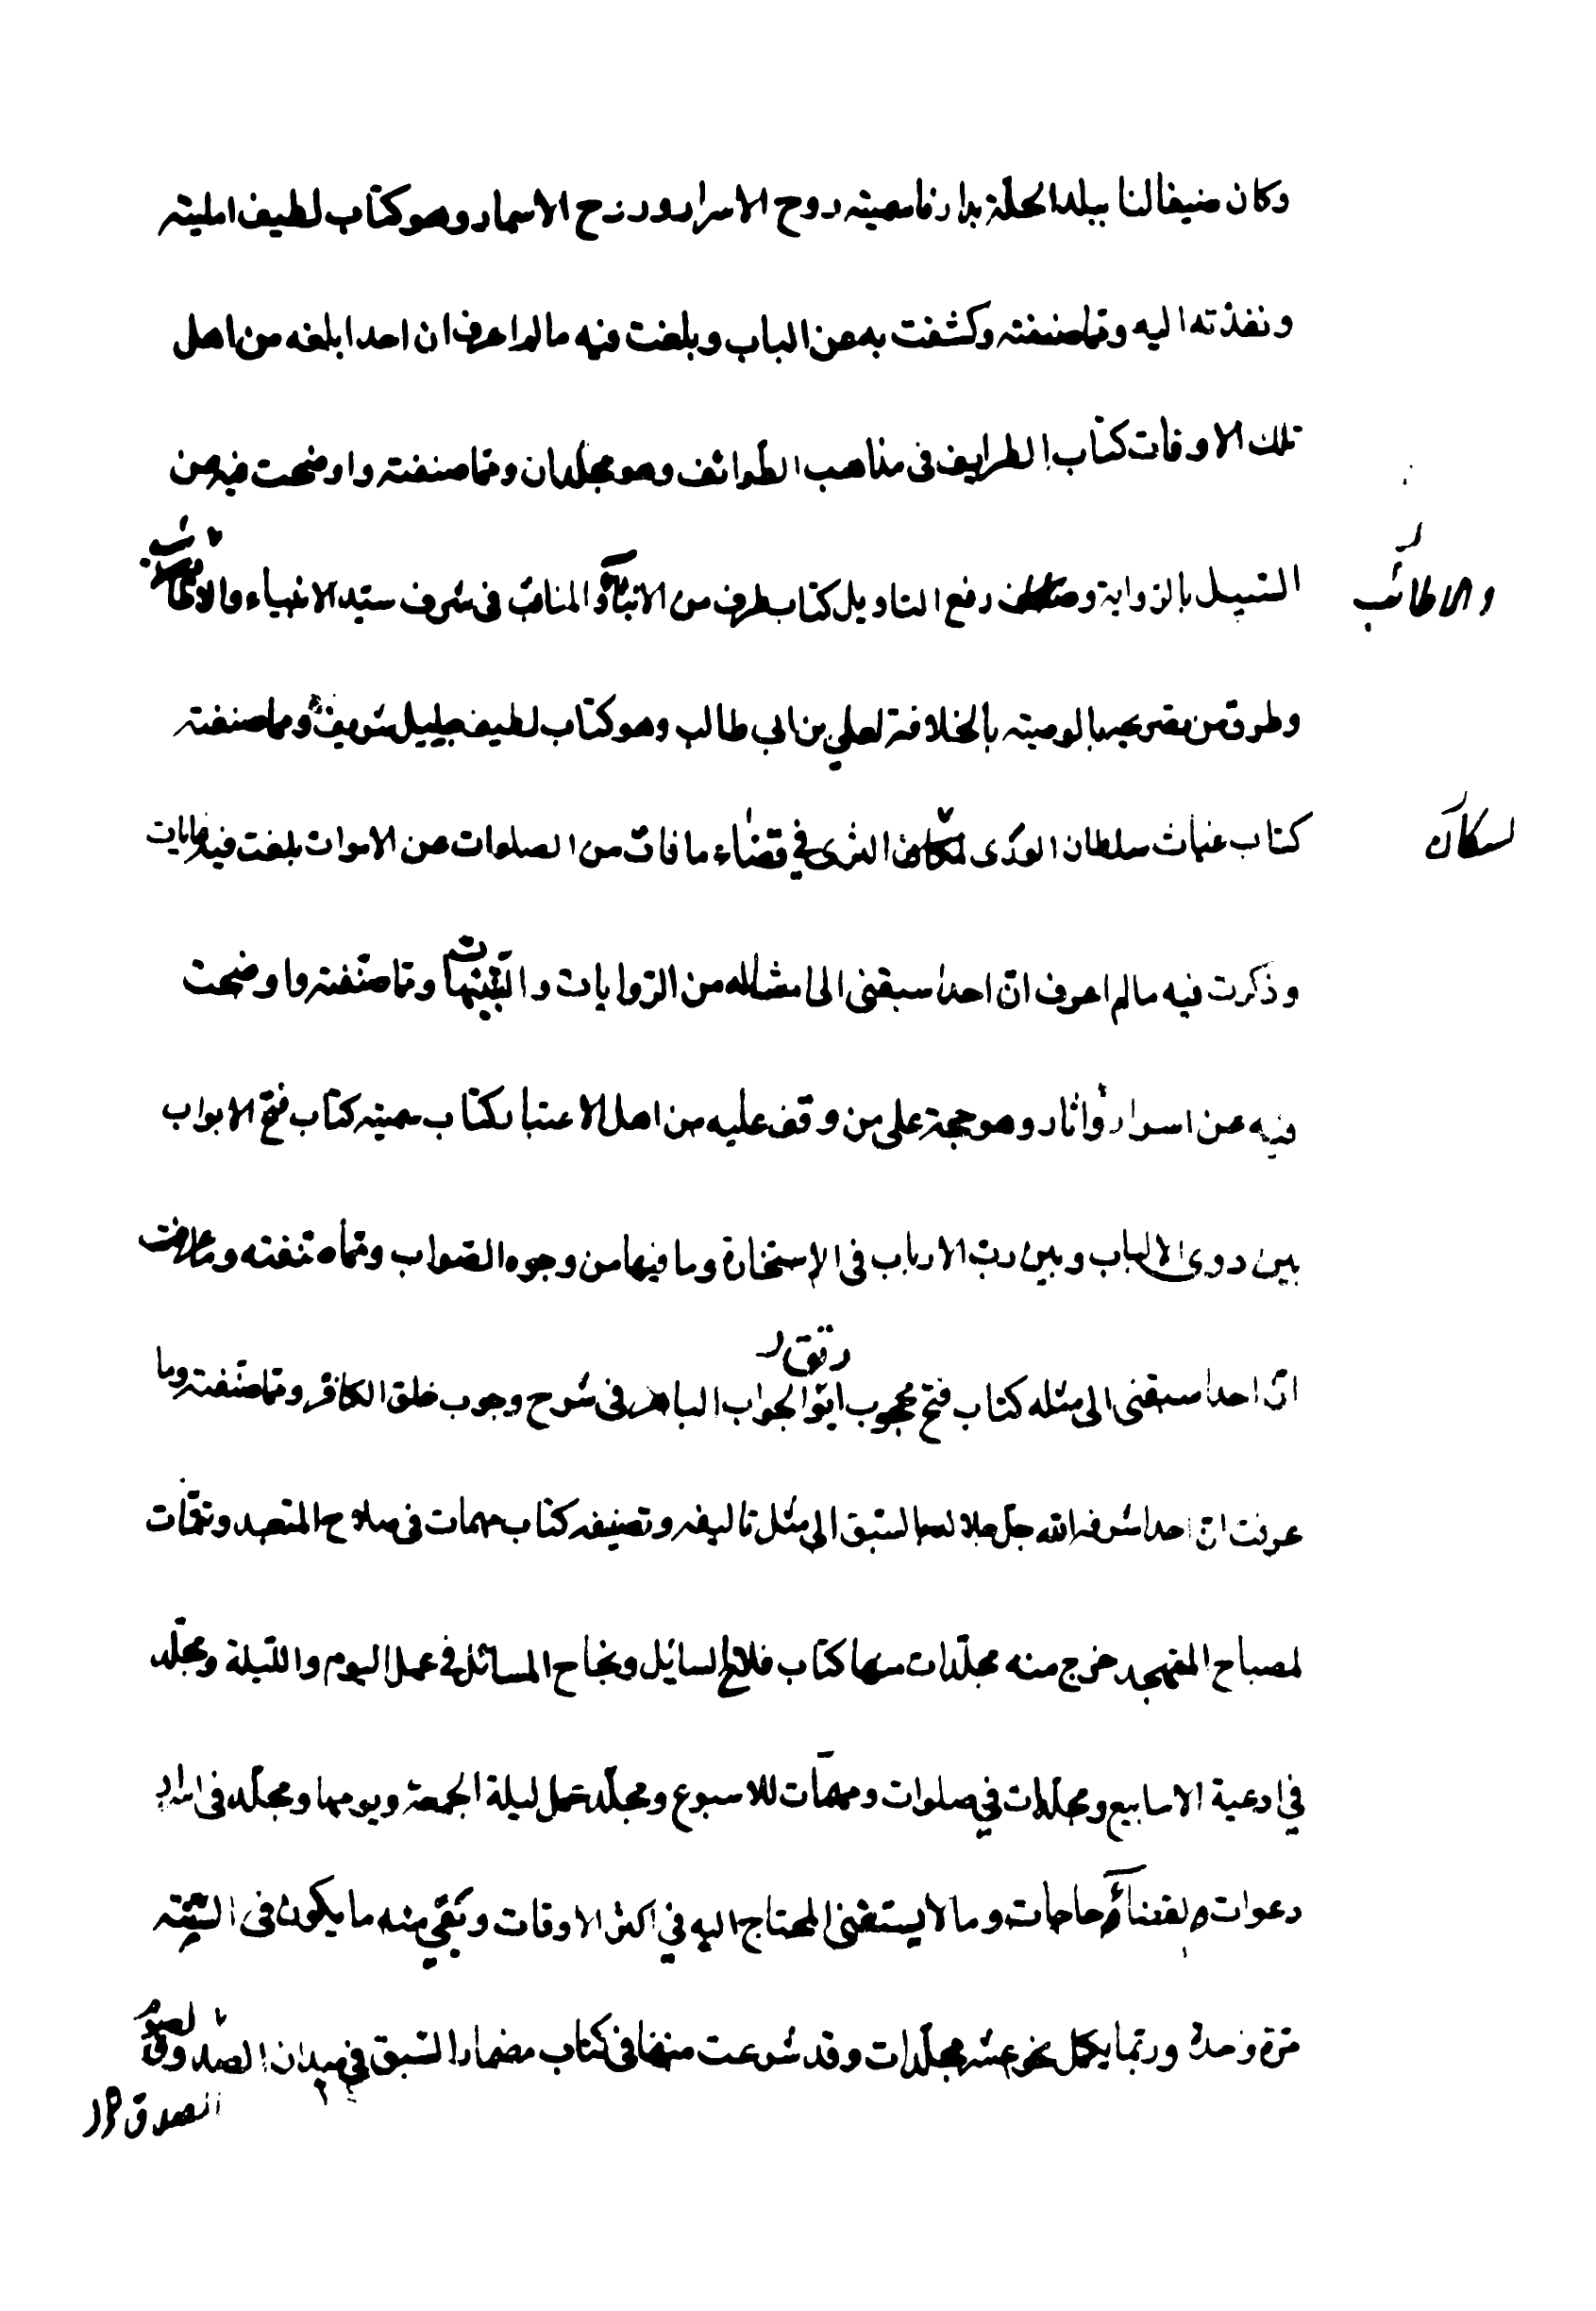 وكان ضيفا لنا ببلد الحلة بدارنا سميته روح الاسرار وروح الاسمار وهو كتاب لطيف امليته
ونفذته اليه ومما صنفته وكشفت به عن الباب وبلغت فيه ما لم اعرف ان احدا بلغه من اهل
تلك الاوقات كتاب الطرايف فى مذاهب الطوائف وهو مجلدان ومما صنفته واوضحت فيه من
السبيل بالرواية و رفع التاويل كتاب طرف من الانبآء والمناقب فى شرف سيد الانبياء والاطائب
والاطائب
وطرق من تصريحه بالوصيته بالخلافة لعلي بن ابى طالب وهو كتاب لطيف جليل شريف ومما صنفته
كتاب غياث سلطان الورى لسكان الثرى في قضاء ما فات من الصلوات عن الاموات بلغت فيه غايات
لسكان
وذكرت فيه ما لم اعرف ان احدا سبقنى الى مثاله من الروايات والتنبيهات ومما صنفته واوضحت
فيه عن اسرار واثار وهو حجة على من وقف عليه من اهل الاعتبار كتاب سميته كتاب فتح الابواب
بين ذوى الالباب وبين رب الارباب فى الإستخارة وما فيها من وجوه الصواب ومما صنفته وما عرفت
ان احدا سبقنى الى مثله كتاب فتح محجوب الجواب الباهر فى شرح وجوب خلق الكافر ومما صنفته وما
عرفت ان احدا شرفه الله جل جلاله بالسبق الى مثل تاليفه وتصنيفه كتاب مهمات فى صلاح المتعبد وتتمات
لمصباح المتهجد خرج منه مجلدات منها كتاب فلاح السايل ونجاح المسائل في عمل اليوم والليلة ومجلد
في ادعية الاسابيع ومجلدات في صلوات ومهمات للاسبوع ومجلد عمل ليلة الجمعة ويومها ومجلد فى اسرار
دعوات لقضآء حاجات وما لا يستغنى المحتاج اليه في اكثر الاوقات وبقي منه ما يكون فى السنة
مرة واحدة وربما يكمل نحو عشر مجلدات وقد شرعت منها فى كتاب مضمار السبق في ميدان الصدق
الصدق